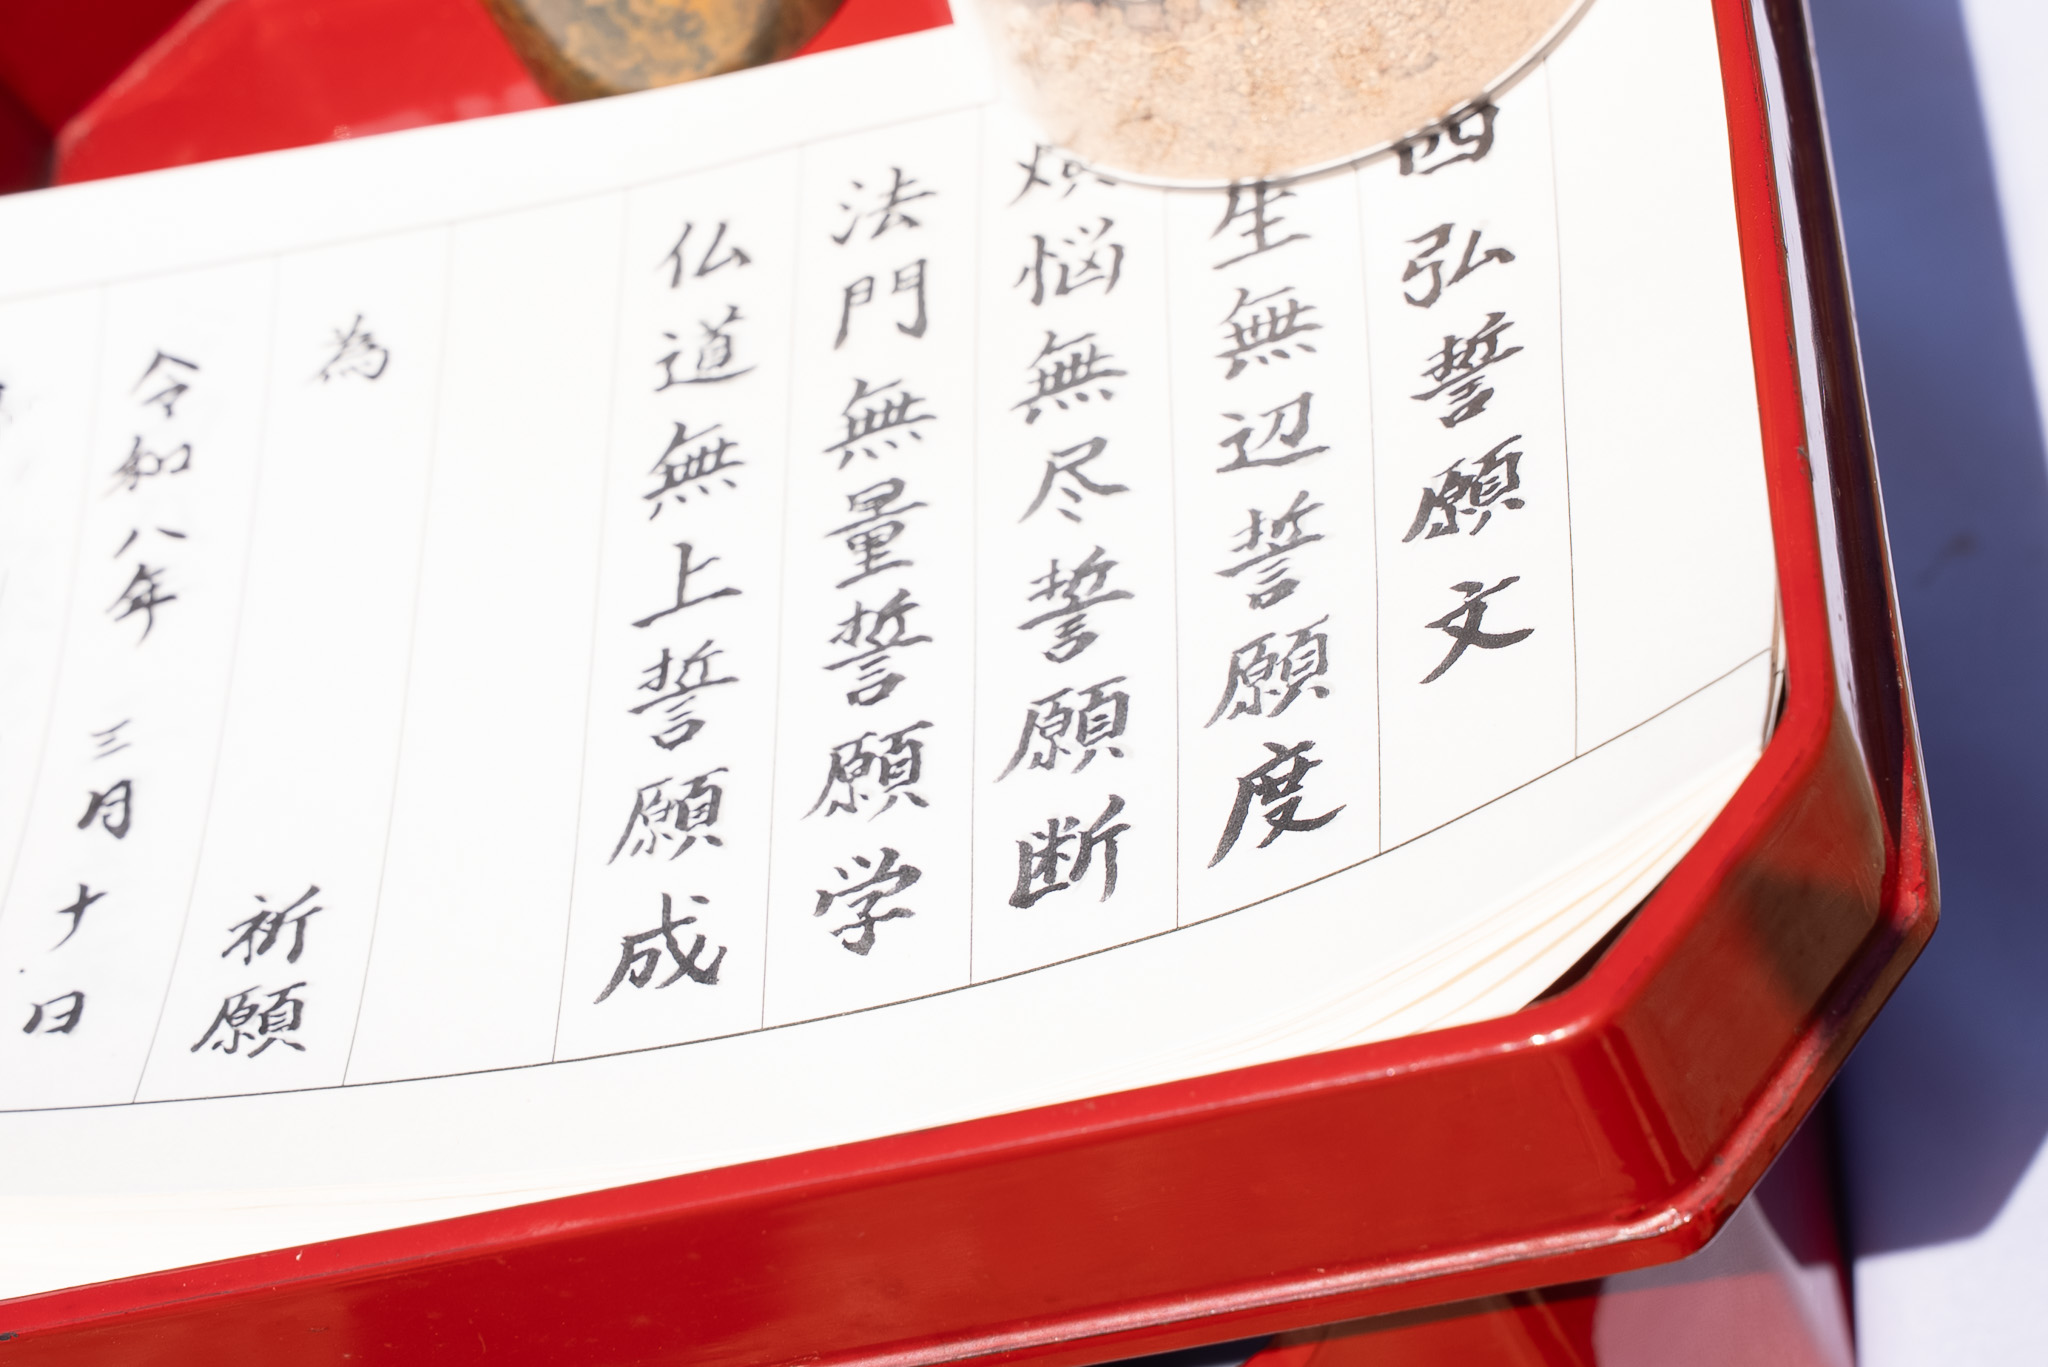 四弘誓願文
生無辺誓願度
煩悩無尽誓願断
法門無量誓願学
仏道無上誓願成
為 祈願
令和八年 三月 十日